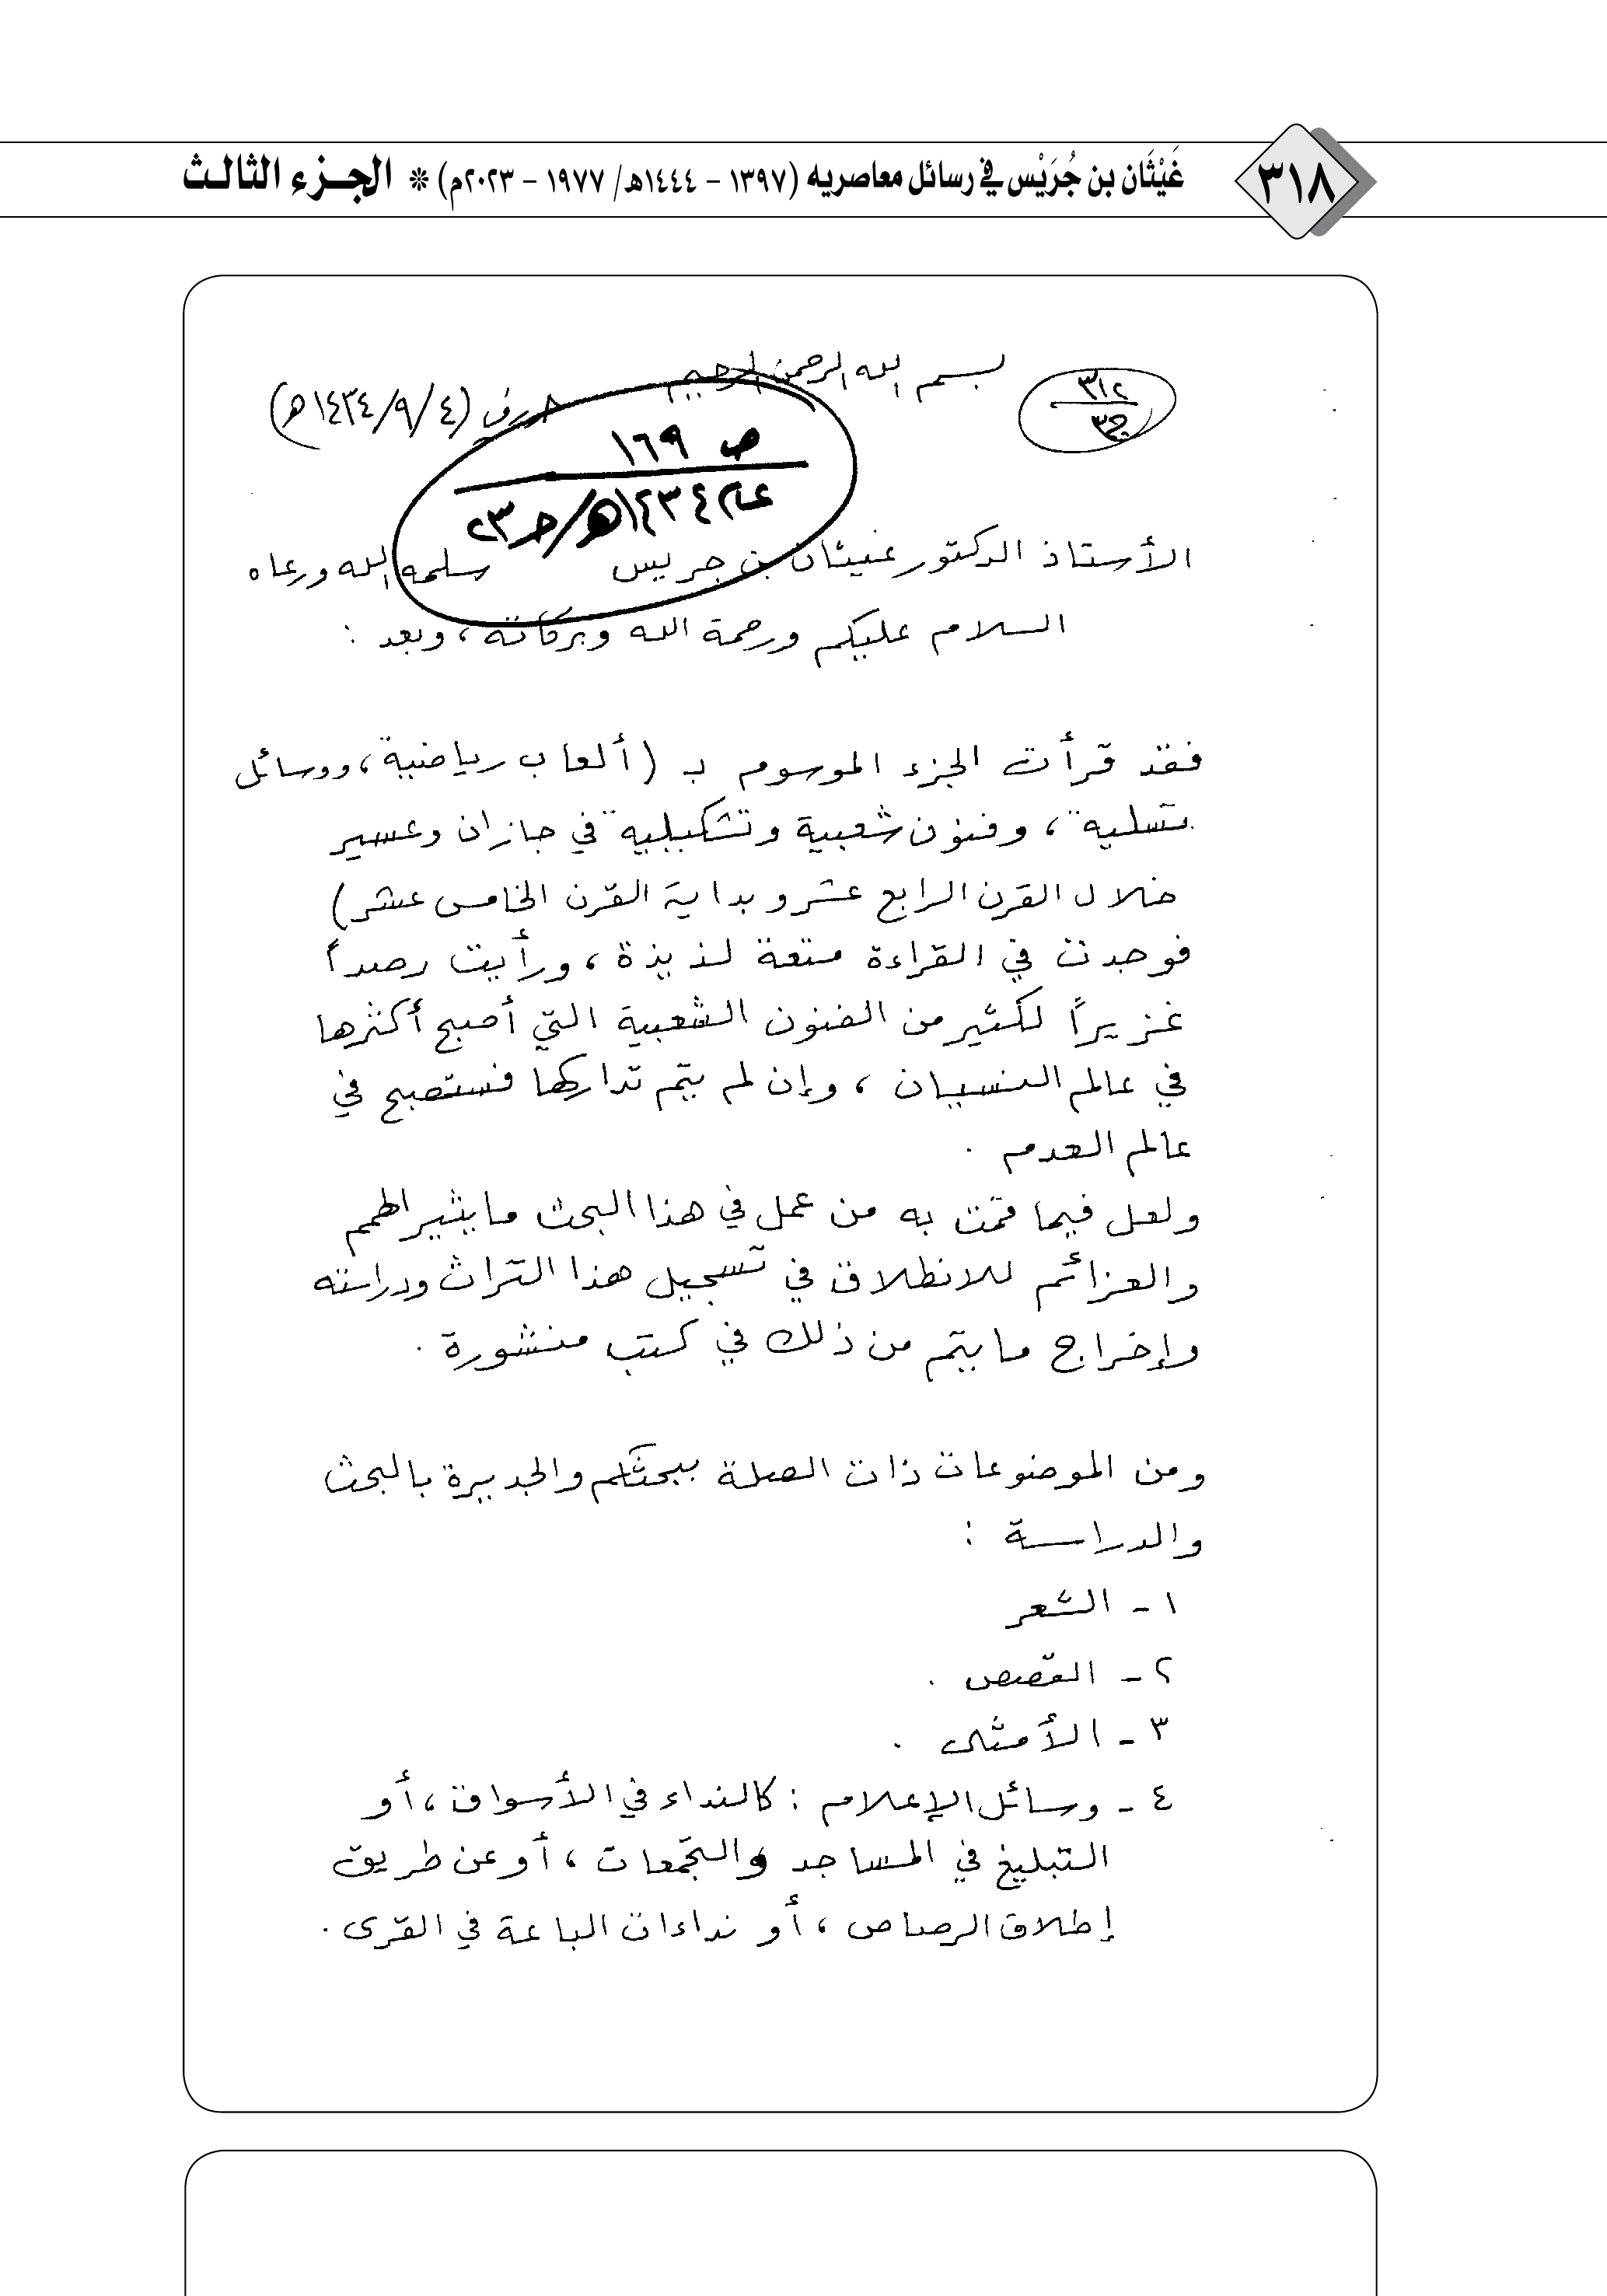 ٣١٨
غَيْثَان بن جُرَيْس في رسائل معاصريه (١٣٩٧ - ١٤٤٤هـ/ ١٩٧٧ - ٢٠٢٣م) * الجـزء الثالث
بسم الله الرحمن الرحيم
٣١٢
ج٣
حرر في (٤/ ٩/ ١٤٣٤هـ)
ص ١٦٩
عام ١٤٣٤هـ/ جـ ٢٣
الأستاذ الدكتور غيثان بن جريس سلمه الله ورعاه
السلام عليكم ورحمة الله وبركاته ، وبعد :
فقد قرأت الجزء الموسوم بـ (ألعاب رياضية ، ووسائل
تسلية ، وفنون شعبية وتشكيلية في جازان وعسير
خلال القرن الرابع عشر وبداية القرن الخامس عشر)
فوجدت في القراءة متعة لذيذة ، ورأيت رصداً
غزيراً لكثير من الفنون الشعبية التي أصبح أكثرها
في عالم النسيان ، وإن لم يتم تداركها فستصبح في
عالم العدم .
ولعل فيما قمت به من عمل في هذا البحث ما يثير الهمم
والعزائم للانطلاق في تسجيل هذا التراث ودراسته
وإخراج ما يتم من ذلك في كتب منشورة .
ومن الموضوعات ذات الصلة ببحثكم والجديرة بالبحث
والدراسة :
١ - الشعر
٢ - القصص .
٣ - الأمثال .
٤ - وسائل الإعلام : كالنداء في الأسواق ، أو
التبليغ في المساجد والتجمعات ، أو عن طريق
إطلاق الرصاص ، أو نداءات الباعة في القرى .